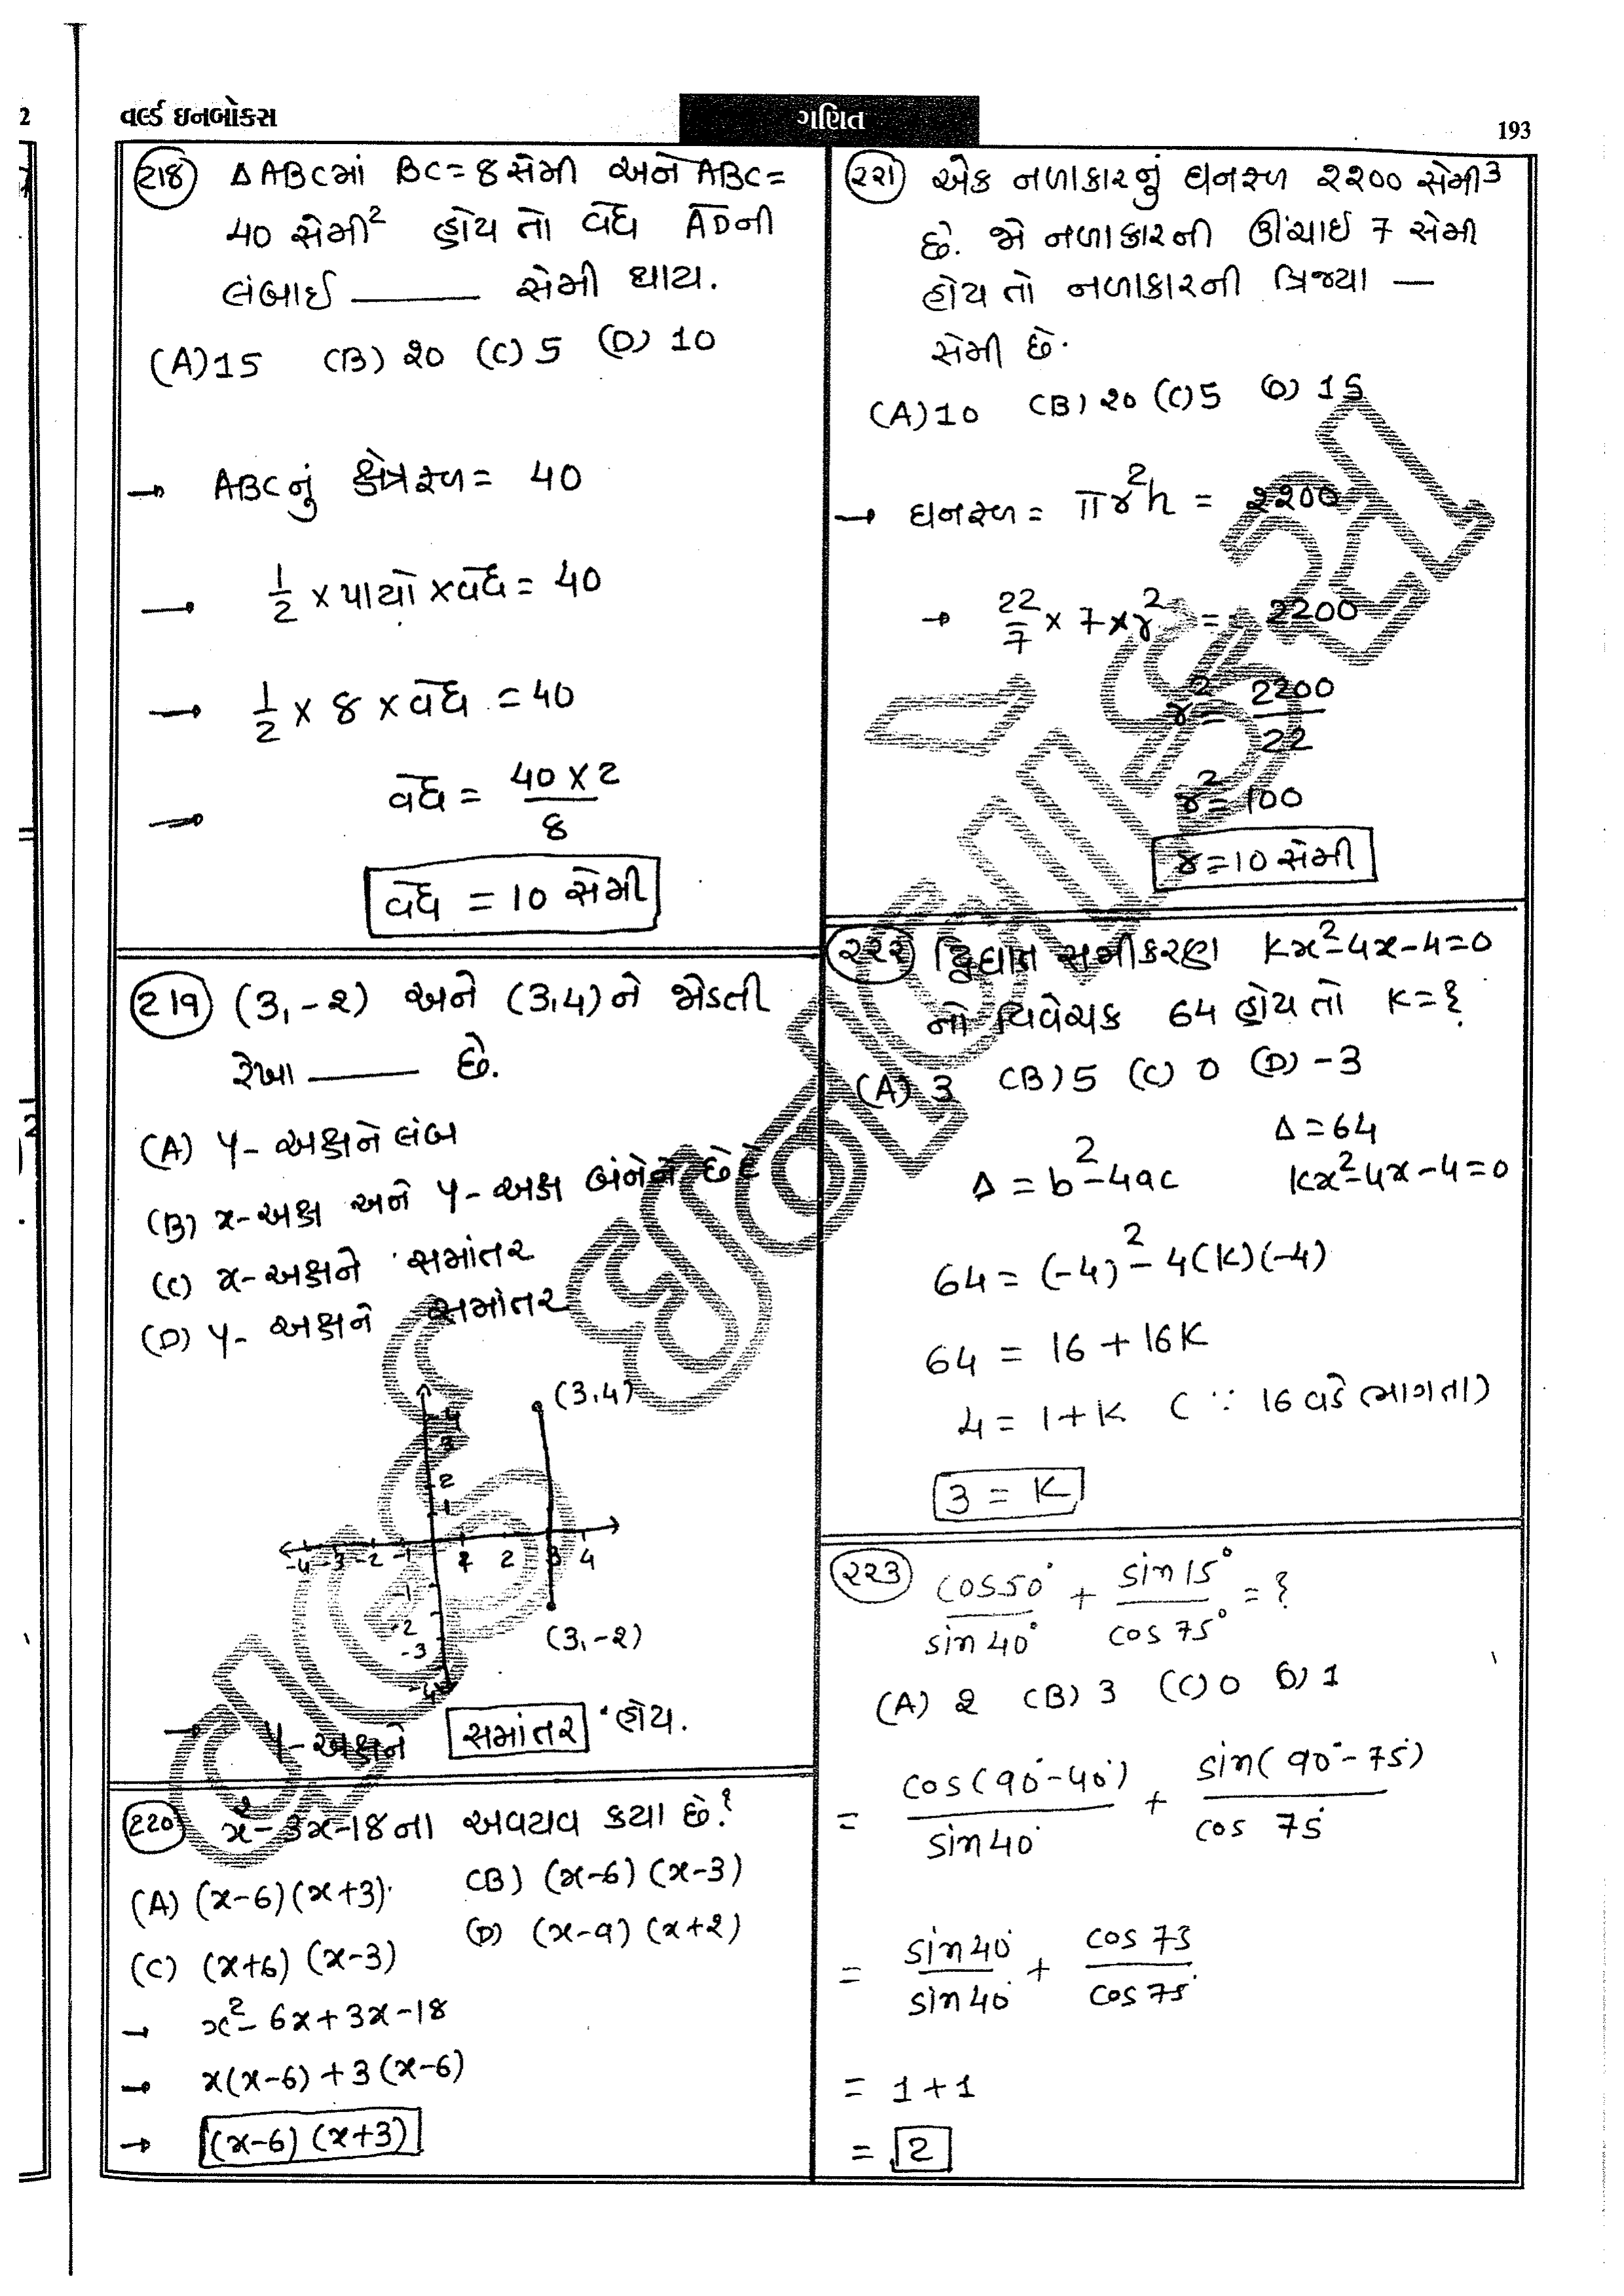 વર્લ્ડ ઇનબોક્સ
ગણિત
193
218 Δ ABCમાં BC = 8 સેમી અને ABC =
40 સેમી² હોય તો વેધ AD ની
લંબાઈ ——— સેમી થાય.
(A) 15 (B) ૨0 (C) 5 (D) 10
→ ABC નું ક્ષેત્રફળ = 40
→ 1/2 × પાયો × વેધ = 40
→ 1/2 × 8 × વેધ = 40
→ વેધ = 40 × 2 / 8
વેધ = 10 સેમી
21૭ (3, -૨) અને (3,4) ને જોડતી
રેખા ——— છે.
(A) Y- અક્ષને લંબ
(B) x-અક્ષ અને Y-અક્ષ બંનેને છેદે
(C) x-અક્ષને સમાંતર
(D) Y- અક્ષને સમાંતર
(3,4)
4
3
2
1
-4 -3 -2 -1 1 2 3 4
-1
-2
-3
-4
(3,-૨)
→ Y-અક્ષને સમાંતર હોય.
220 x²-3x-18 ના અવયવ કયા છે?
(A) (x-6)(x+3) (B) (x-6)(x-3)
(C) (x+6)(x-3) (D) (x-૯)(x+૨)
→ x²-6x+3x-18
→ x(x-6)+3(x-6)
→ (x-6)(x+3)
૨૨૧ એક નળાકારનું ઘનફળ ૨૨00 સેમી³
છે. જો નળાકારની ઊંચાઈ 7 સેમી
હોય તો નળાકારની ત્રિજ્યા —
સેમી છે.
(A) 10 (B) ૨0 (C) 5 (D) 15
→ ઘનફળ = πr²h = ૨૨00
→ 22/7 × 7 × r² = 2200
r² = 2200/22
r² = 100
r = 10 સેમી
૨૨૨ દ્વિઘાત સમીકરણ Kx²-4x-4=0
નો વિવેચક 64 હોય તો K=?
(A) 3 (B) 5 (C) 0 (D) -3
Δ = 64
Δ = b²-4ac Kx²-4x-4=0
64 = (-4)² - 4(K)(-4)
64 = 16 + 16K
4 = 1+K (∵ 16 વડે ભાગતા)
3 = K
૨૨3 cos50°/sin40° + sin15°/cos75° = ?
(A) ૨ (B) 3 (C) 0 (D) 1
= cos(90°-40°)/sin40° + sin(90°-75°)/cos 75°
= sin40°/sin40° + cos75/cos75°
= 1+1
= 2